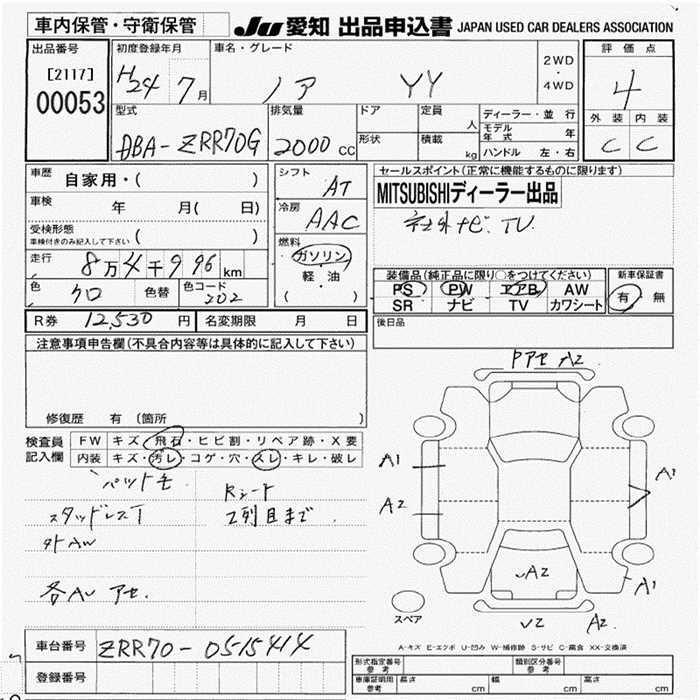 車内保管・守衛保管 JU 愛知 出品申込書 JAPAN USED CAR DEALERS ASSOCIATION
出品番号 初度登録年月 車名・グレード 2WD・4WD 評価点
[2117] 00053 H24 7月 ノア YY 4
型式 排気量 ドア 定員 人 ディーラー・並行 外装 内装
DBA-ZRR70G 2000cc 形状 積載 kg モデル年式 年 C C
ハンドル 左・右
車歴 自家用・( ) シフト AT セールスポイント(正常に機能するものに限ります)
車検 年 月( 日) 冷房 AAC MITSUBISHIディーラー出品
受検形態 車検付きのみ記入して下さい ( ) 社外ナビ. TV.
走行 8万4千996km 燃料 ガソリン・軽・油 ( )
装備品(純正品に限り○をつけてください) 新車保証書
色 クロ 色替 色コード 202 PS PW エアB AW 有・無
SR ナビ TV カワシート
R券 12,530円 名変期限 月 日 後日品
注意事項申告欄(不具合内容等は具体的に記入して下さい)
PアセA2
修復歴 有 (箇所 )
検査員記入欄 FW キズ・飛石・ヒビ割・リペア跡・X要
内装 キズ・汚レ・コゲ・穴・スレ・キレ・破レ
A1
A1
A2
Rシート
スタッドレスT 2列目まで
外AW
A2
A1
各AW アセ.
スペア
V2 A2
A-キズ E-エクボ U-凹み W-補修跡 S-サビ C-腐食 XX-交換済
車台番号 ZRR70-0515414
登録番号
形式指定番号 参考 類別区分番号 参考
車庫証明用 参考 長さ cm 幅 cm 高さ cm